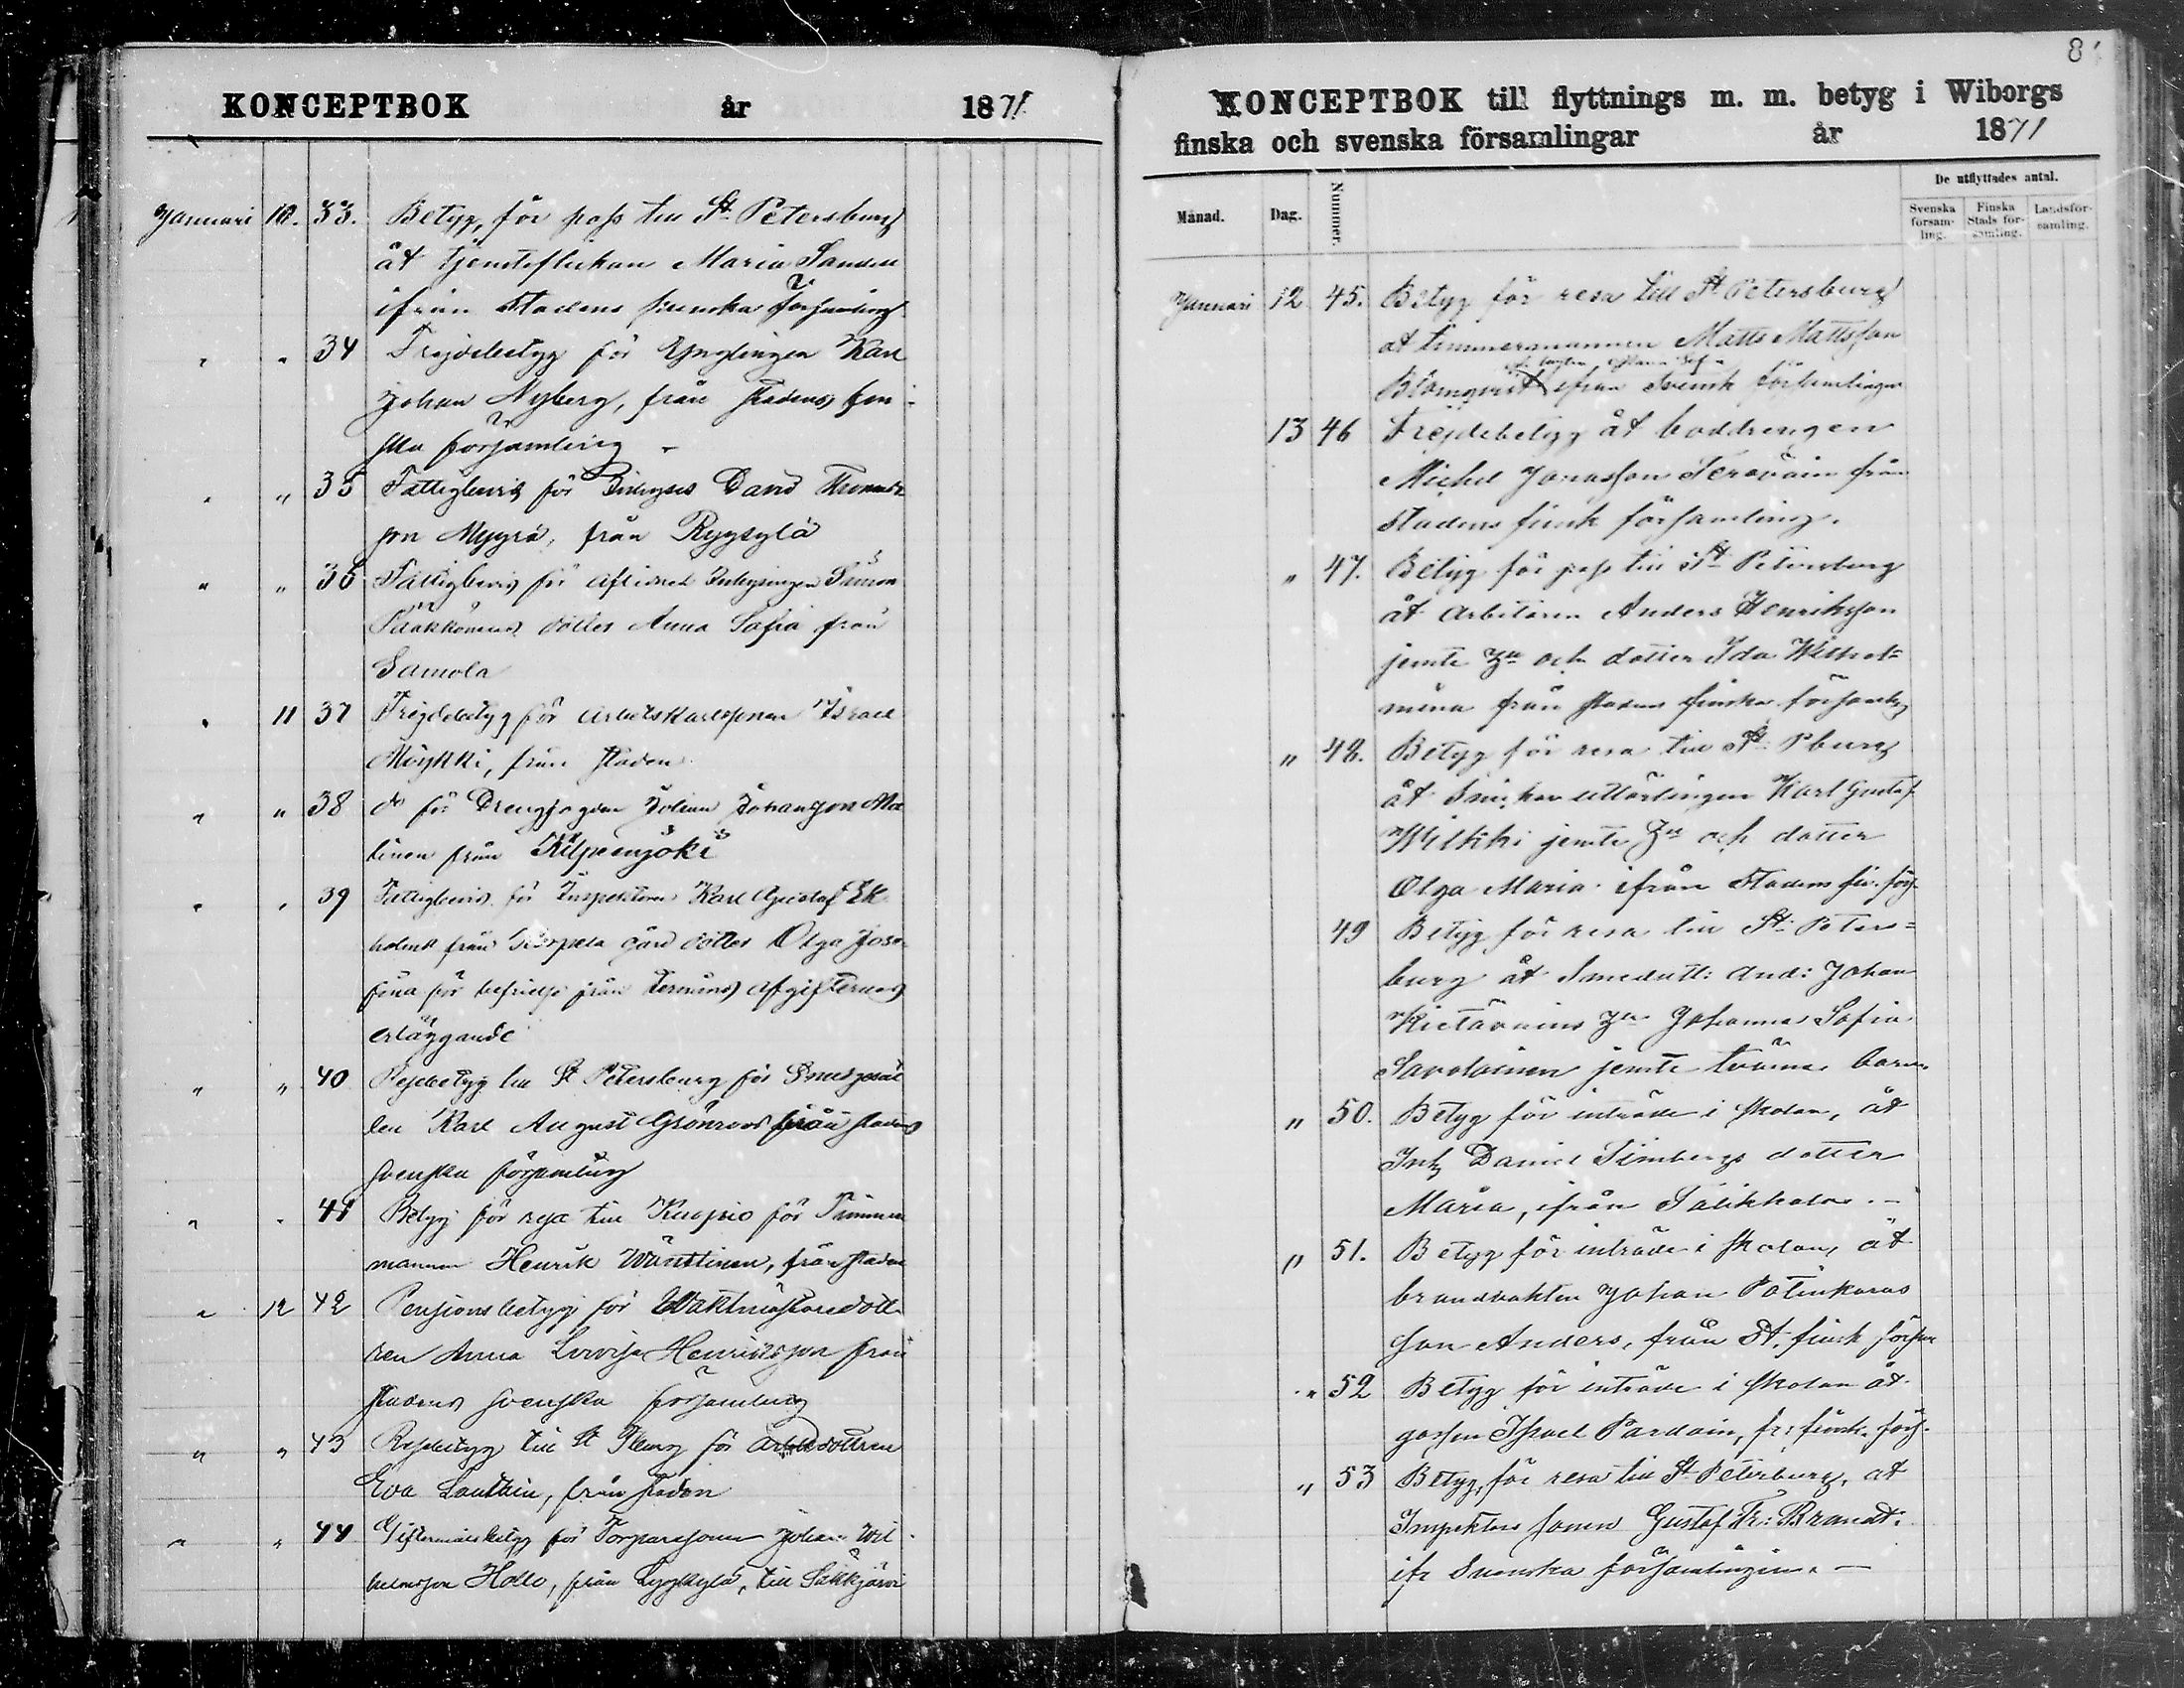 KONCEPTBOK år 1871
Januari 10. 33. Betyg, för pass till St. Petersburg
åt tjensteflickan Maria
ifrån stadens svenska församling
" " 34 Frejdebetyg för Ynglingen Karl
Johan Nyberg, från stadens fin-
ska församling -
" " 35 Fattigbevis för David Thomas-
son Myyrä, från
" " 36 Fattigbevis för aflidne Inhysingen Simon
Pääkkönens dotter Anna Sofia från
Samola
" 11 37 Frejdebetyg för arbetskarlssonen Israel
från staden
" " 38 do för Drengsågen Johan Johansson
från Kilpeenjoki
" " 39 Fattigbevis för Inspektoren Karl Gustaf Ek
från gård dotter Olga Jose-
fina för befrielse från termins afgifternas
erläggande
" " 40 Resebetyg till St Petersburg för Smedgesäl
len Karl August Grönroos från stadens
svenska församling
" " 41 Betyg för resa till Kuopio för Timmer
mannen Henrik Wänttinen, från staden
" 12 42 Pensionsbetyg för Waktmästaredott
ren Anna Lovisa Henriksson från
stadens svenska församling
" " 43 Resebetyg till St Pburg för arbetsdottren
Eva från staden
" " 44 Giftermålsbetyg för Torparesonen Johan Wil-
helmsson Hollo, från till Säkkjärvi
8
KONCEPTBOK till flyttnings m. m. betyg i Wiborgs
finska och svenska församlingar år 1871
Månad. Dag. Nummer. De utflyttades antal.
Svenska försam-ling. Finska Stads för-samling. Landsför-samling.
Januari 12 45. Betyg för resa till St Petersburg
åt timmermannen Matts Mattsson
Blomqvist ifrån Svensk församlingen
13 46 Frejdebetyg åt boddrengen
Michel Jonasson Terävain från
stadens finsk församling.
" 47. Betyg för pass till St Petersburg
åt arbetaren Anders Henriksson
jemte hu och dotter Ida Wilhel=
mina från stadens finska församling
" 48. Betyg för resa till St: Pburg
åt Snickar utlärlingen Karl Gustaf
Wilkki jemte hu och dotter
Olga Maria ifrån Stadens fi. förs.
49 Betyg för resa till St. Peters=
burg åt Smedutl: And: Johan
Kietäväinens hu Johanna Sofia
Savolainen jemte tvänne barn
" 50. Betyg för inträde i skolan, åt
Inh Daniel Simbergs dotter
Maria, ifrån
" 51. Betyg för inträde i skolan, åt
brandvakten Johan Potinkaras
son Anders, från St. finsk förs
" 52 Betyg för inträde i skolan åt
gossen Israel Pardain, fr: finsk. förs.
" 53 Betyg, för resa till St Peterburg, åt
Inspektors sonen Gustaf Fr: Brandt.
ifr Svenska församlingen. —